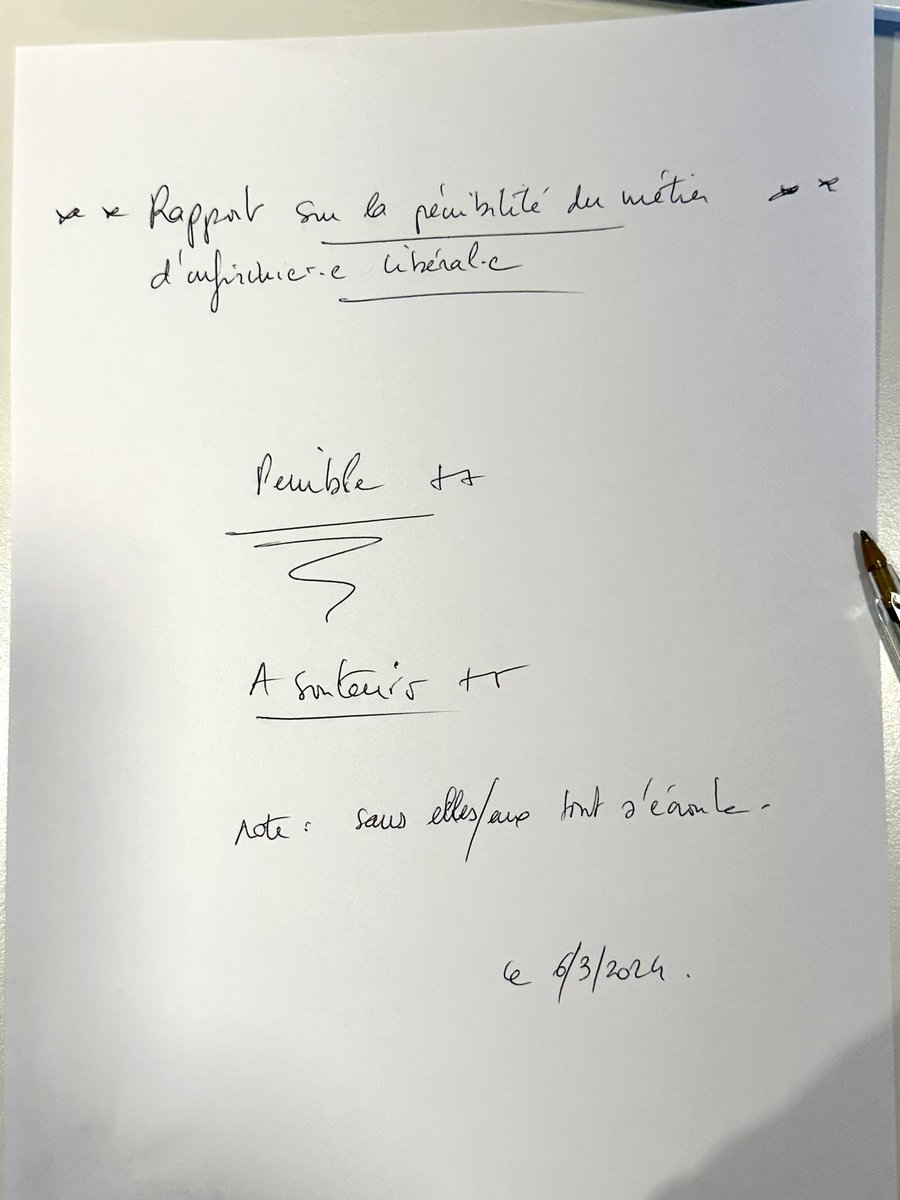 ** Rapport sur la pénibilité du métier **
d'infirmier·e libéral·e
Penible ++
A soutenir ++
note : sans elles/eux tout s'écroule.
le 6/3/2024.